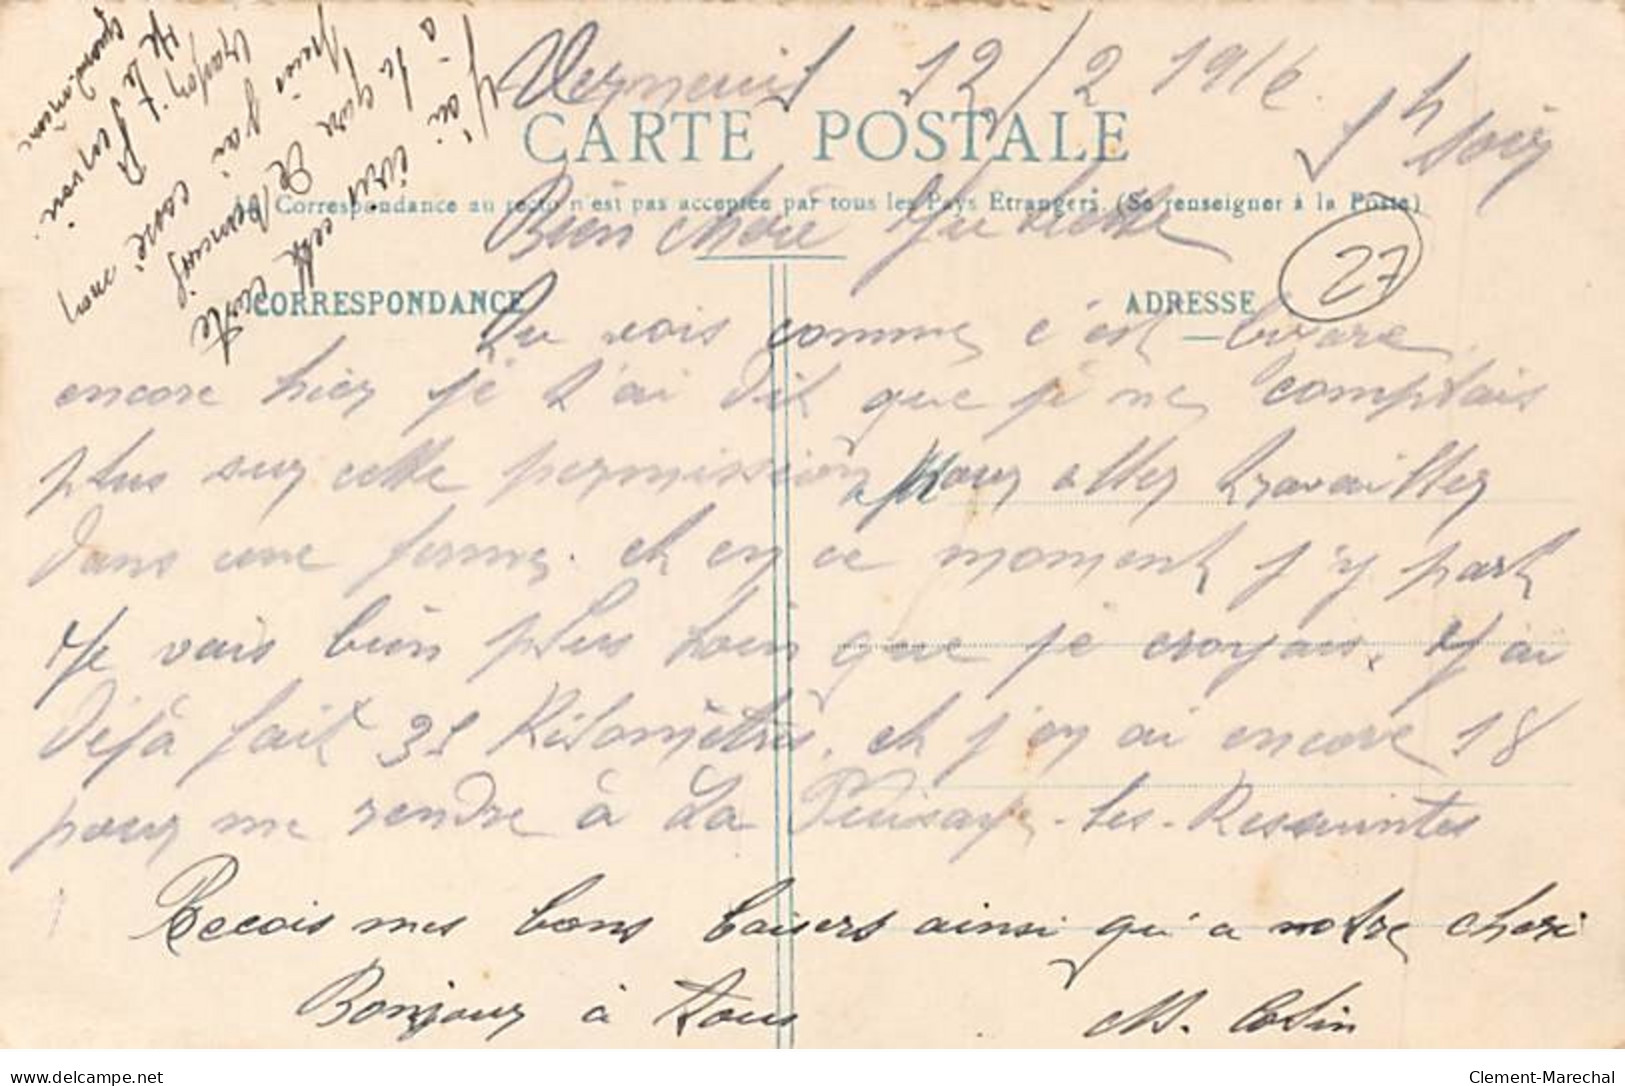 Verneuil 12/2 1916
1h soir
CARTE POSTALE
La Correspondance au recto n'est pas acceptée par tous les Pays Etrangers. (Se renseigner à la Poste)
Bien chère Juliette
27
CORRESPONDANCE
ADRESSE
Tu vois comme c'est bizare
encore hier je t'ai dit que je ne comptais
plus sur cette permission pour aller travailler
dans une ferme. et en ce moment j'y part
Je vais bien plus loin que je croyais. J'ai
déjà fait 31 Kilomètres, et j'en ai encore 18
pour me rendre à La Puisaye-les-Ressuintes
Recois mes bons baisers ainsi qu'a notre cheri
Bonjour à tous
M. Colin
J'ai écrit cette carte
à la gare de Verneuil
puis j'ai cassé mon
crayon.